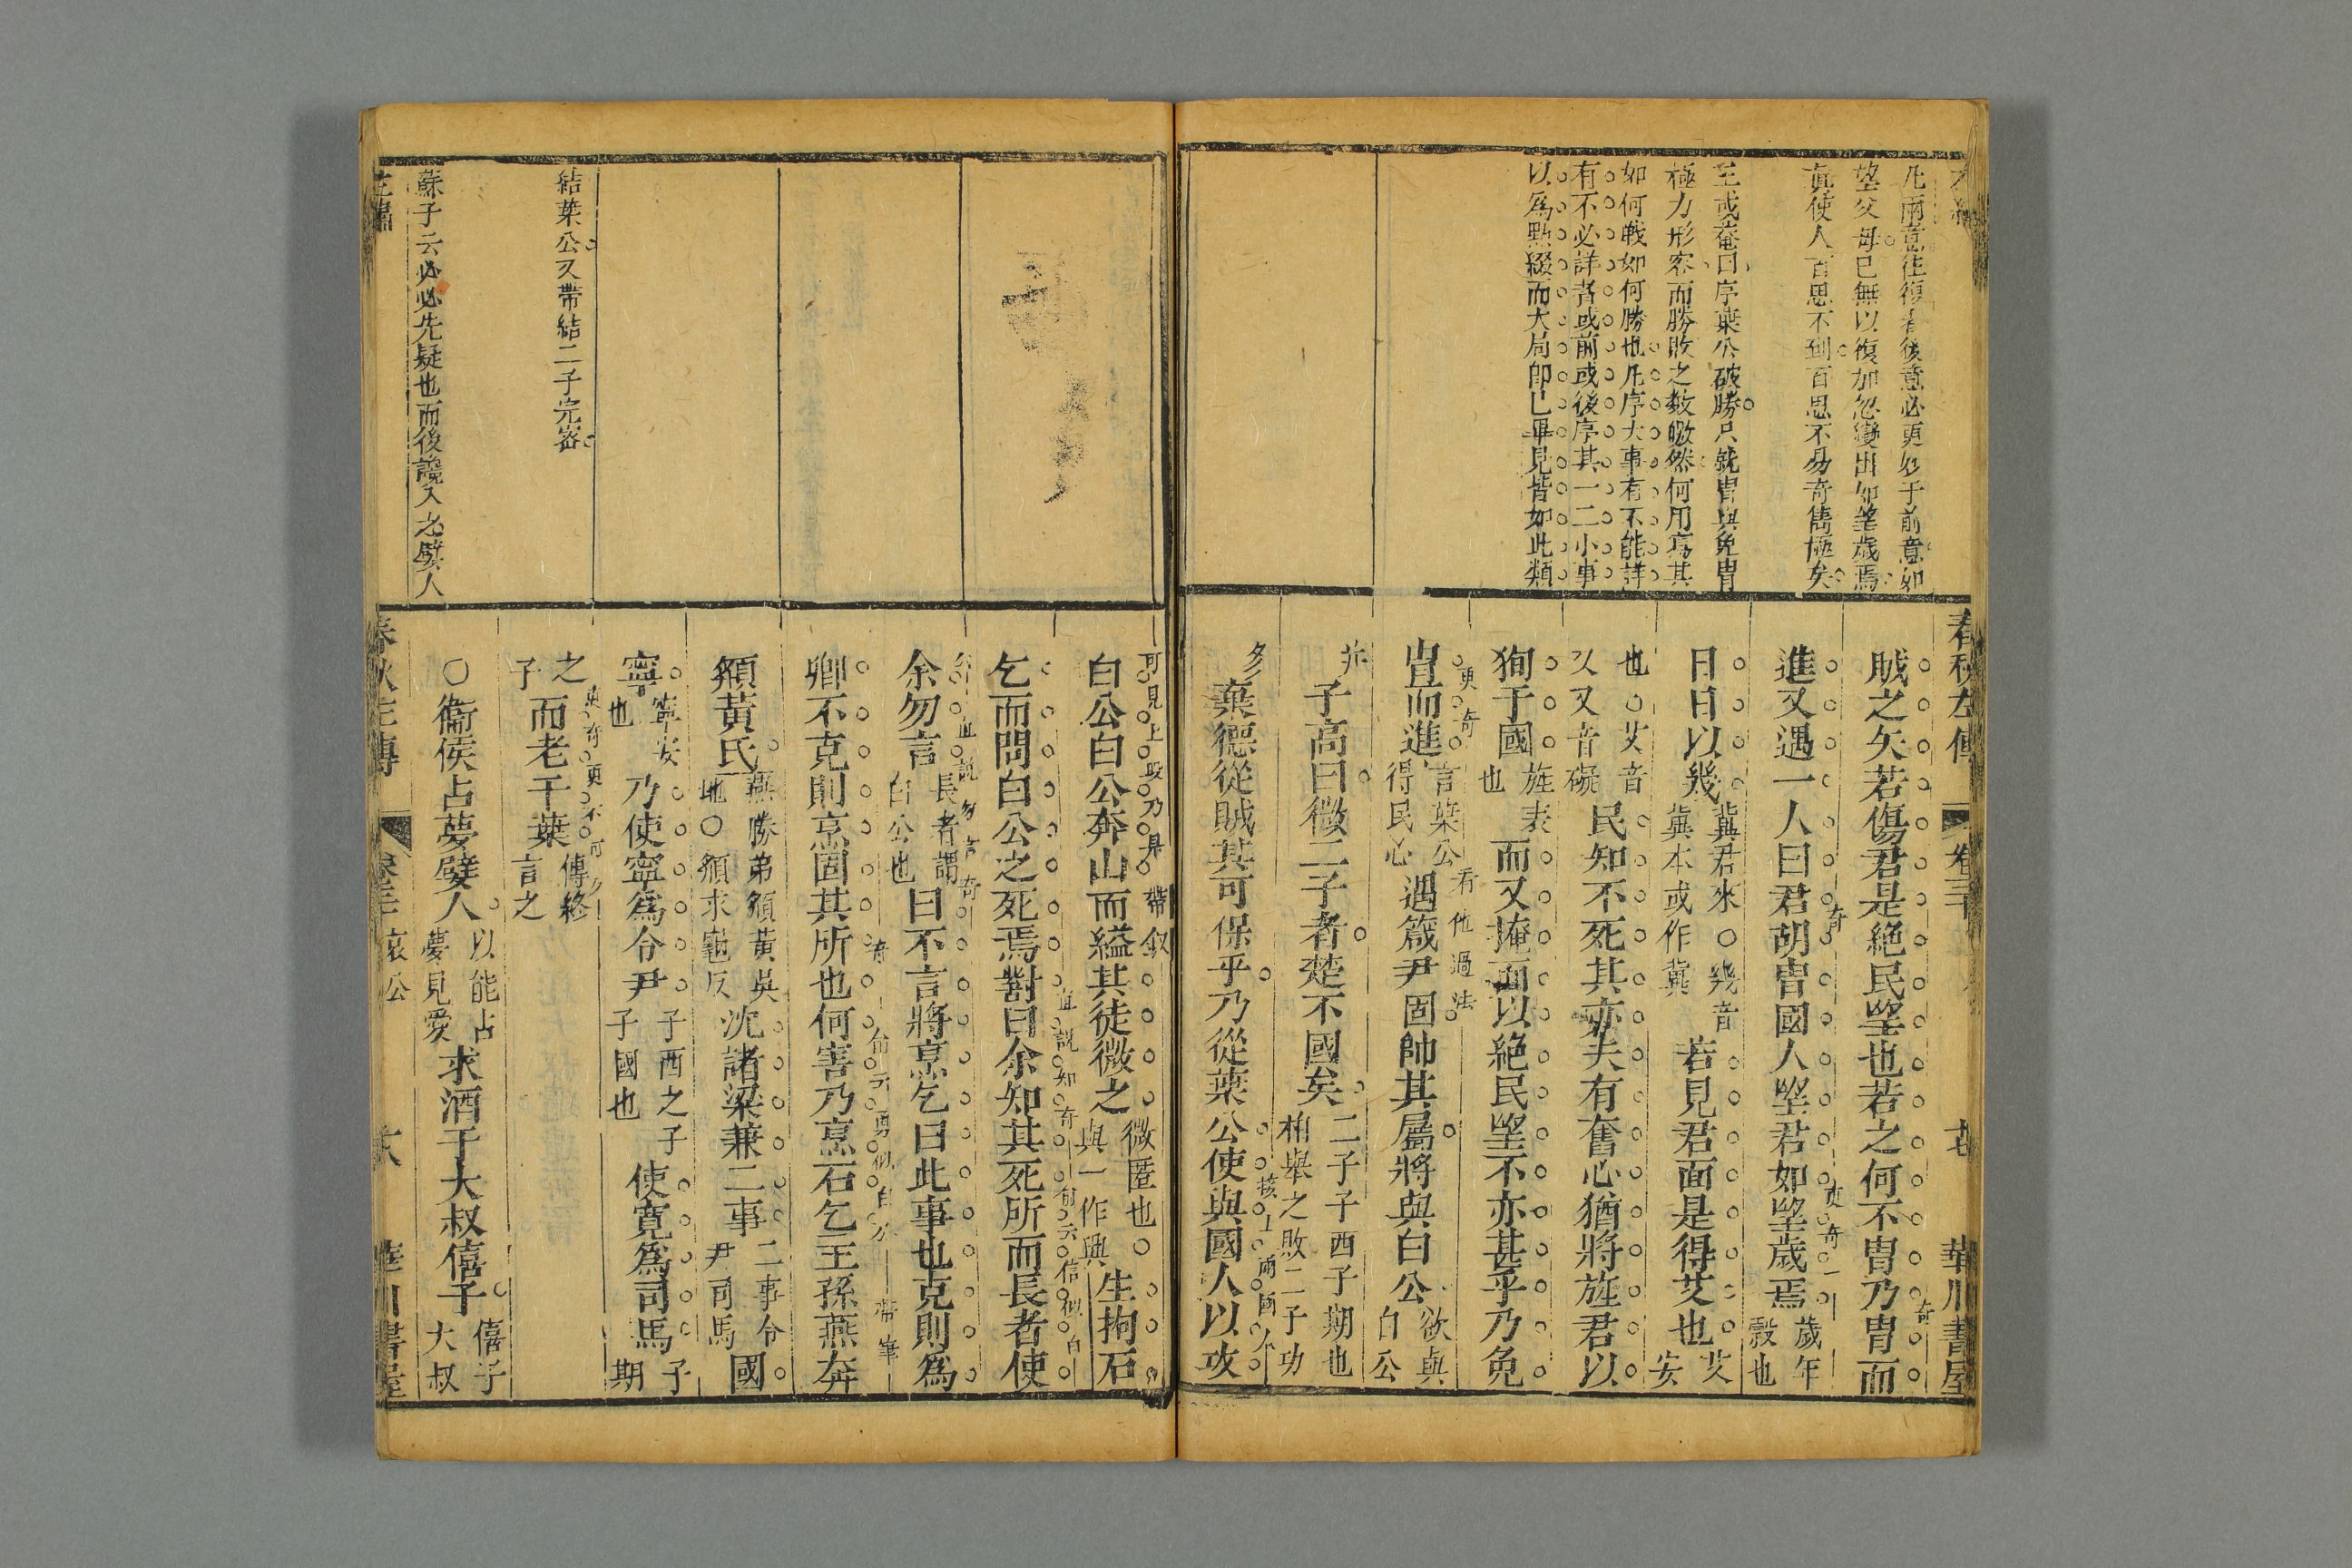 春秋左傳
卷三十
華川書屋
凡兩意往復者後意必更妙于前意如
望父母已無以復加忽變出如望歲焉
真使人百思不到百思不易奇雋極矣
王或菴曰序葉公破勝只就胄與免胄
極力形容而勝敗之數皦然何用寫其
如何戰如何勝也凡序大事有不能詳
有不必詳者或前或後序其一二小事
以為點綴而大局即已畢見皆如此類
賊之矢若傷君是絕民望也若之何不胄乃胄而
奇
進又遇一人曰君胡胄國人望君如望歲焉歲年穀也
奇 更奇
日日以幾冀君來○幾音冀本或作冀若見君面是得艾也艾安
也○艾音又又音礙民知不死其亦夫有奮心猶將旌君以
狥于國旌表也而又掩面以絕民望不亦甚乎乃免
更奇
胄而進言葉公得民心遇箴尹固帥其屬將與白公欲與白公
看他過法
并子高曰微二子者楚不國矣二子子西子期也柏舉之敗二子功
多棄德從賊其可保乎乃從葉公使與國人以攻
可見上段乃是帶叙
白公白公奔山而縊其徒微之微匿也○與一作興生拘石
乞而問白公之死焉對曰余知其死所而長者使
直說知奇
余勿言長者謂白公也曰不言將烹乞曰此事也克則為
直說勿言奇
卿不克則烹固其所也何害乃烹石乞王孫燕奔
奇 帶筆
頯黃氏燕勝弟頯黃吳地○頯求龜反沈諸梁兼二事二事令尹司馬國
寧寧安也乃使寧為令尹子西之子子國也使寬為司馬子期
之子而老于葉傳終言之
更奇更不可少
○衞侯占夢嬖人以能占夢見愛求酒于大叔僖子僖子大叔
結葉公又帶結二子完密
蘇子云必必先疑也而後讒入之嬖人
春秋左傳
哀公
華川書屋